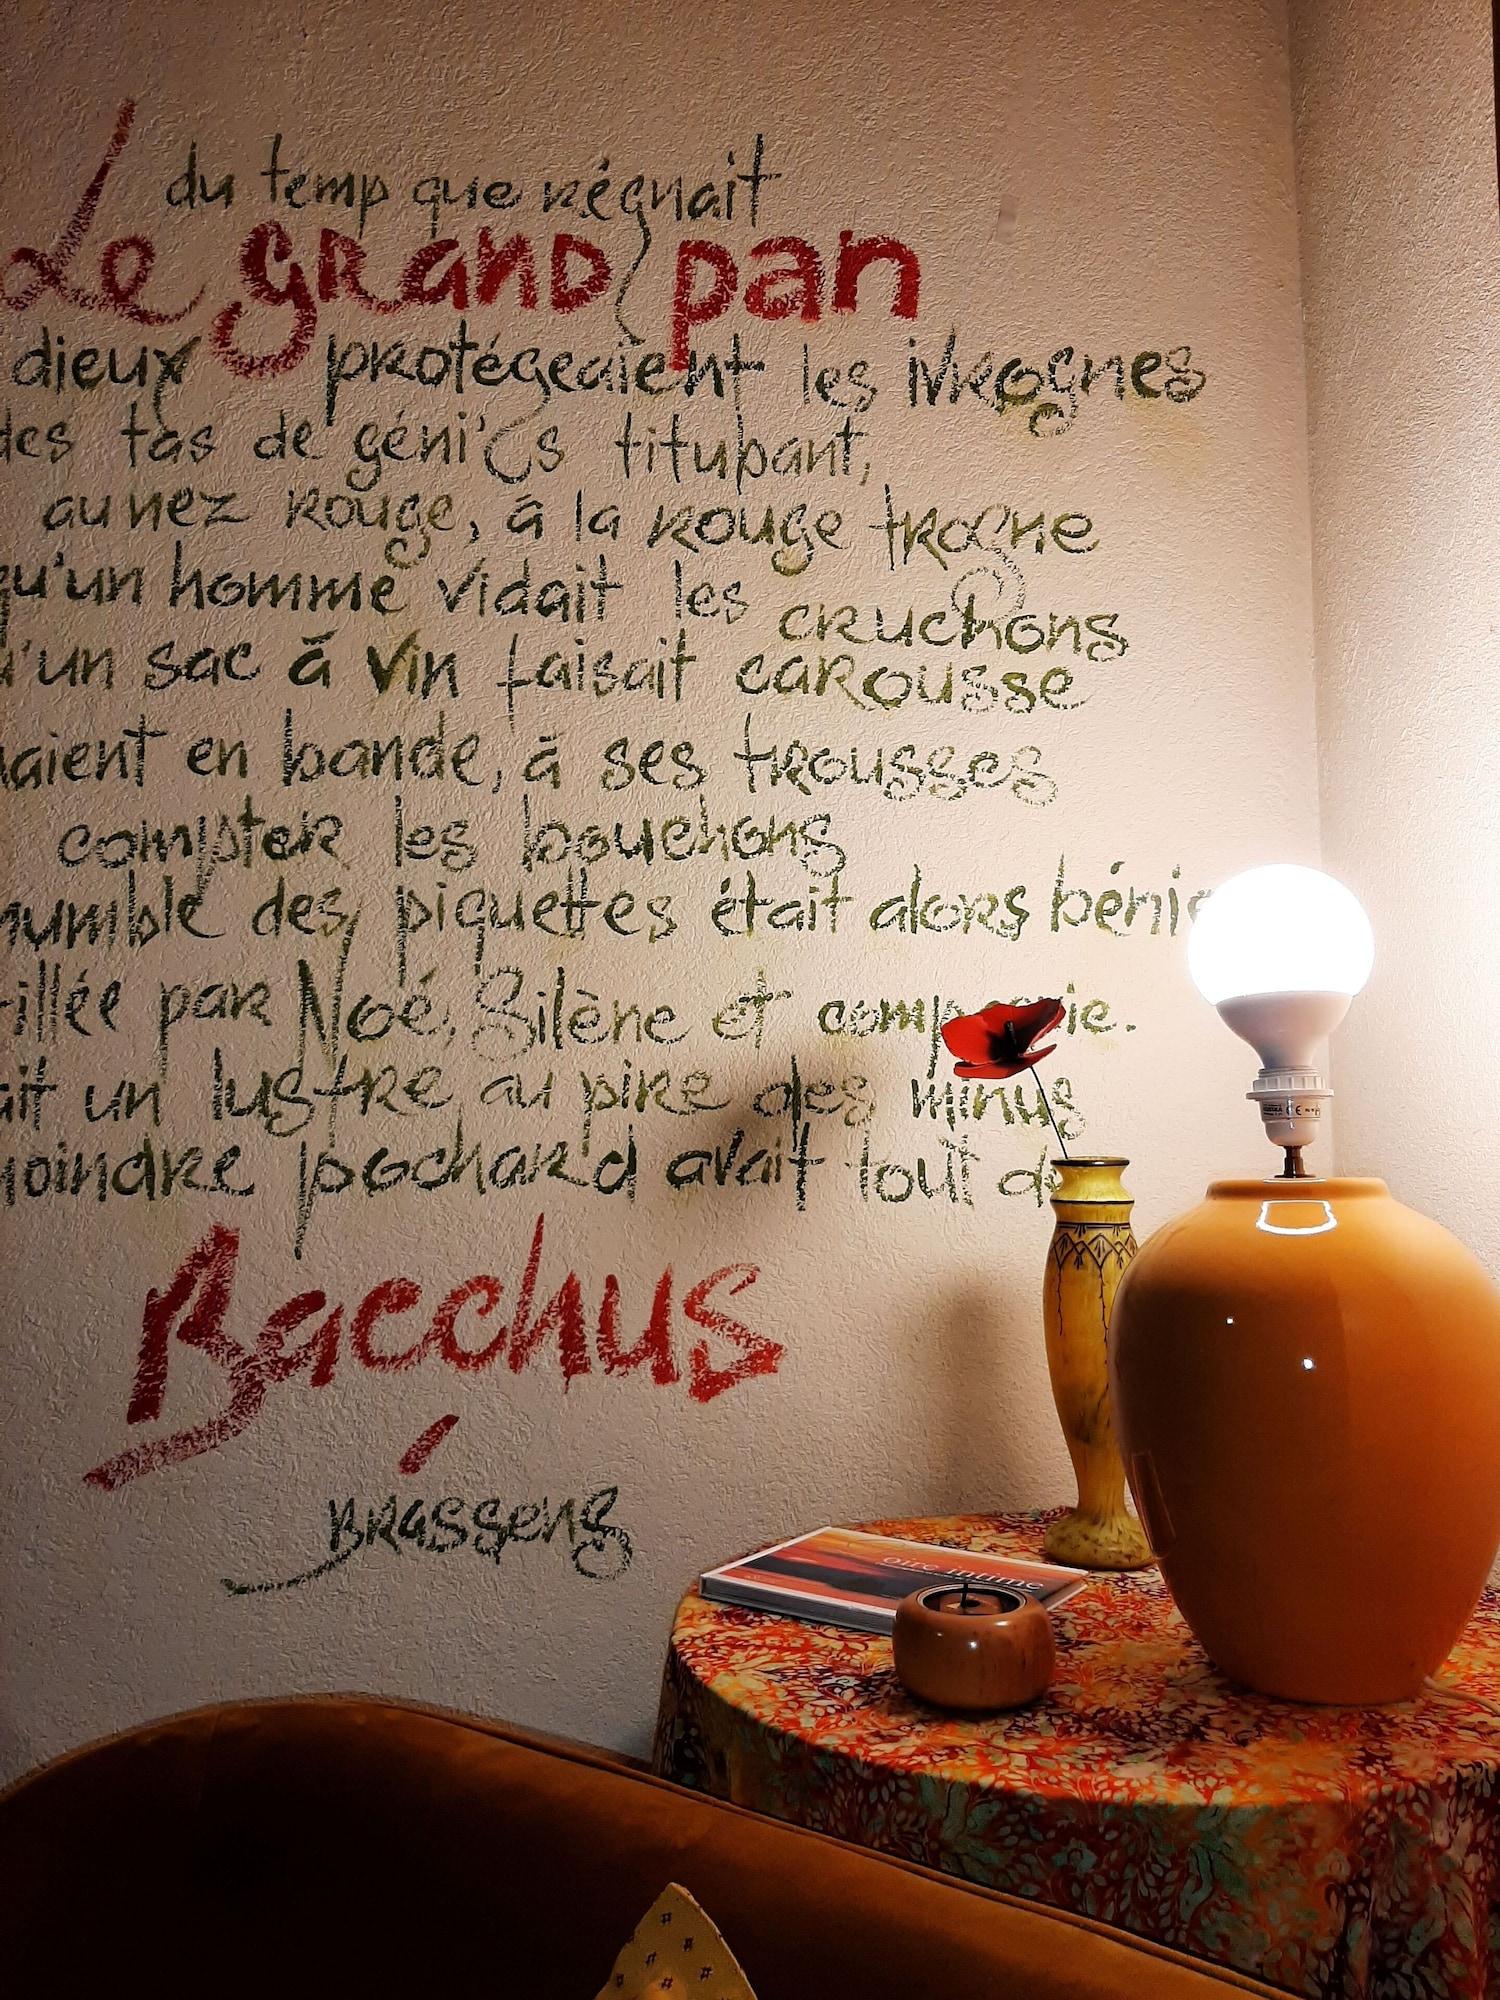 du temp que régnait
Le grand pan
dieux protégeaient les ivrognes
des tas de génies titubant,
au nez rouge, à la rouge trogne
qu'un homme vidait les cruchons
qu'un sac à vin faisait carousse
aient en bande, à ses trousses
compter les bouchons
humble des piquettes était alors bénie
tillée par Noé, Silène et compagnie.
ait un lustre au pire des minus
moindre pochard avait tout de
Bacchus
Brassens
oire intime
CE